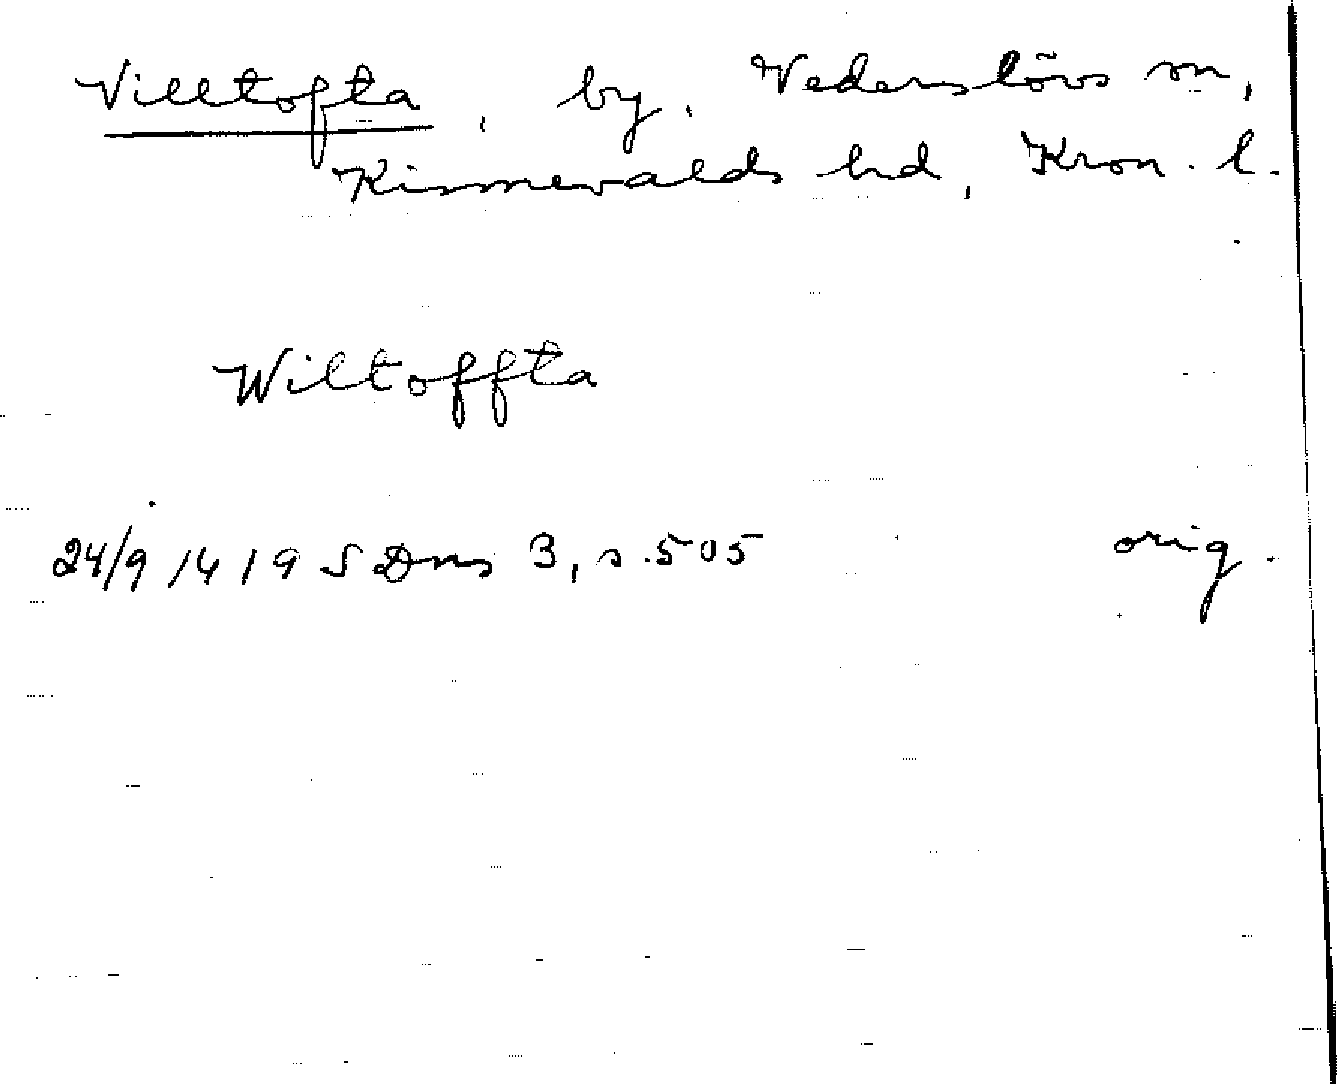 Villtofta, by, Vederslövs sn,
Kinnevalds hd, Kron. l.
Wiltoffta
24/9 1419 SDns 3, s. 505 orig.